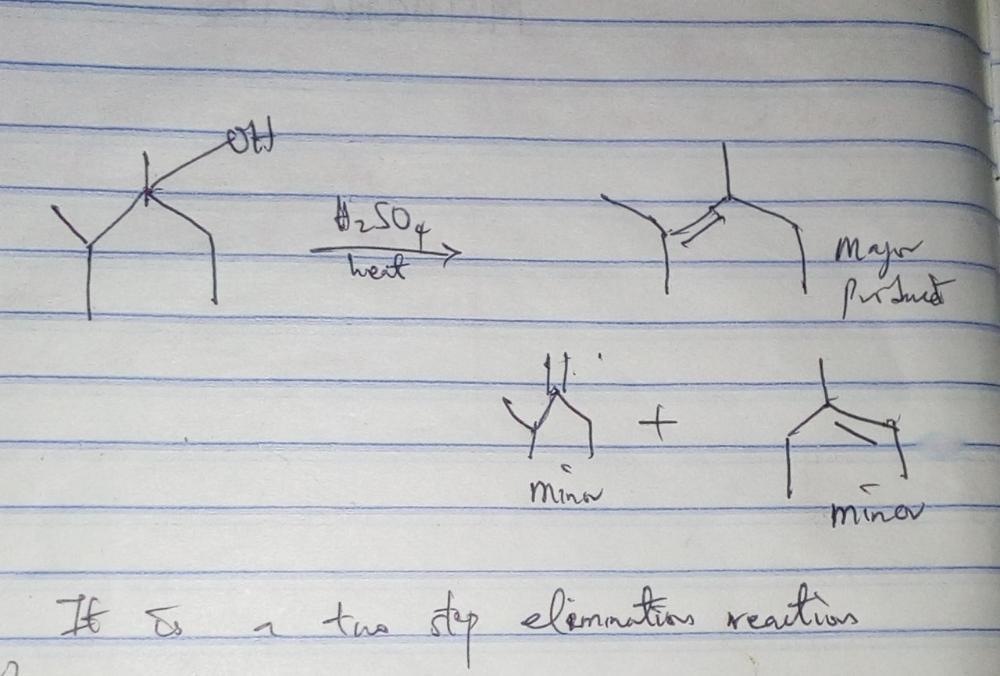 OH
H₂SO₄
heat
Major
Product
+
Minor
Minor
It is a two step elimination reaction